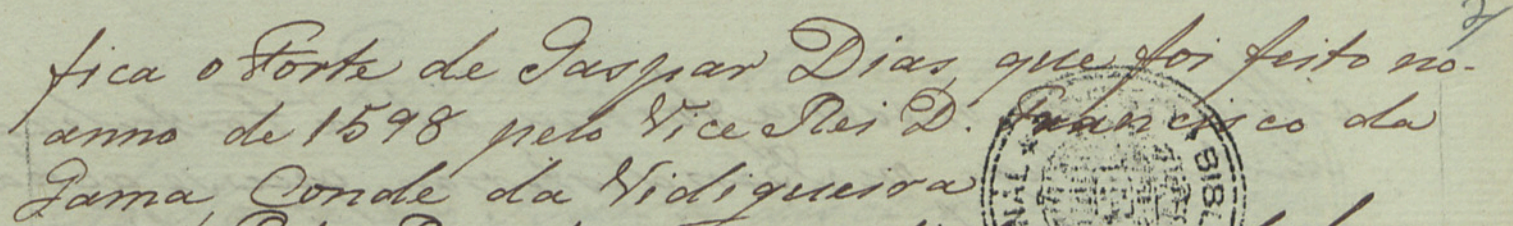 fica o Forte de Gaspar Dias, que foi feito no
anno de 1598 pelo Vice Rei D. Francisco da
Gama, Conde da Vidigueira